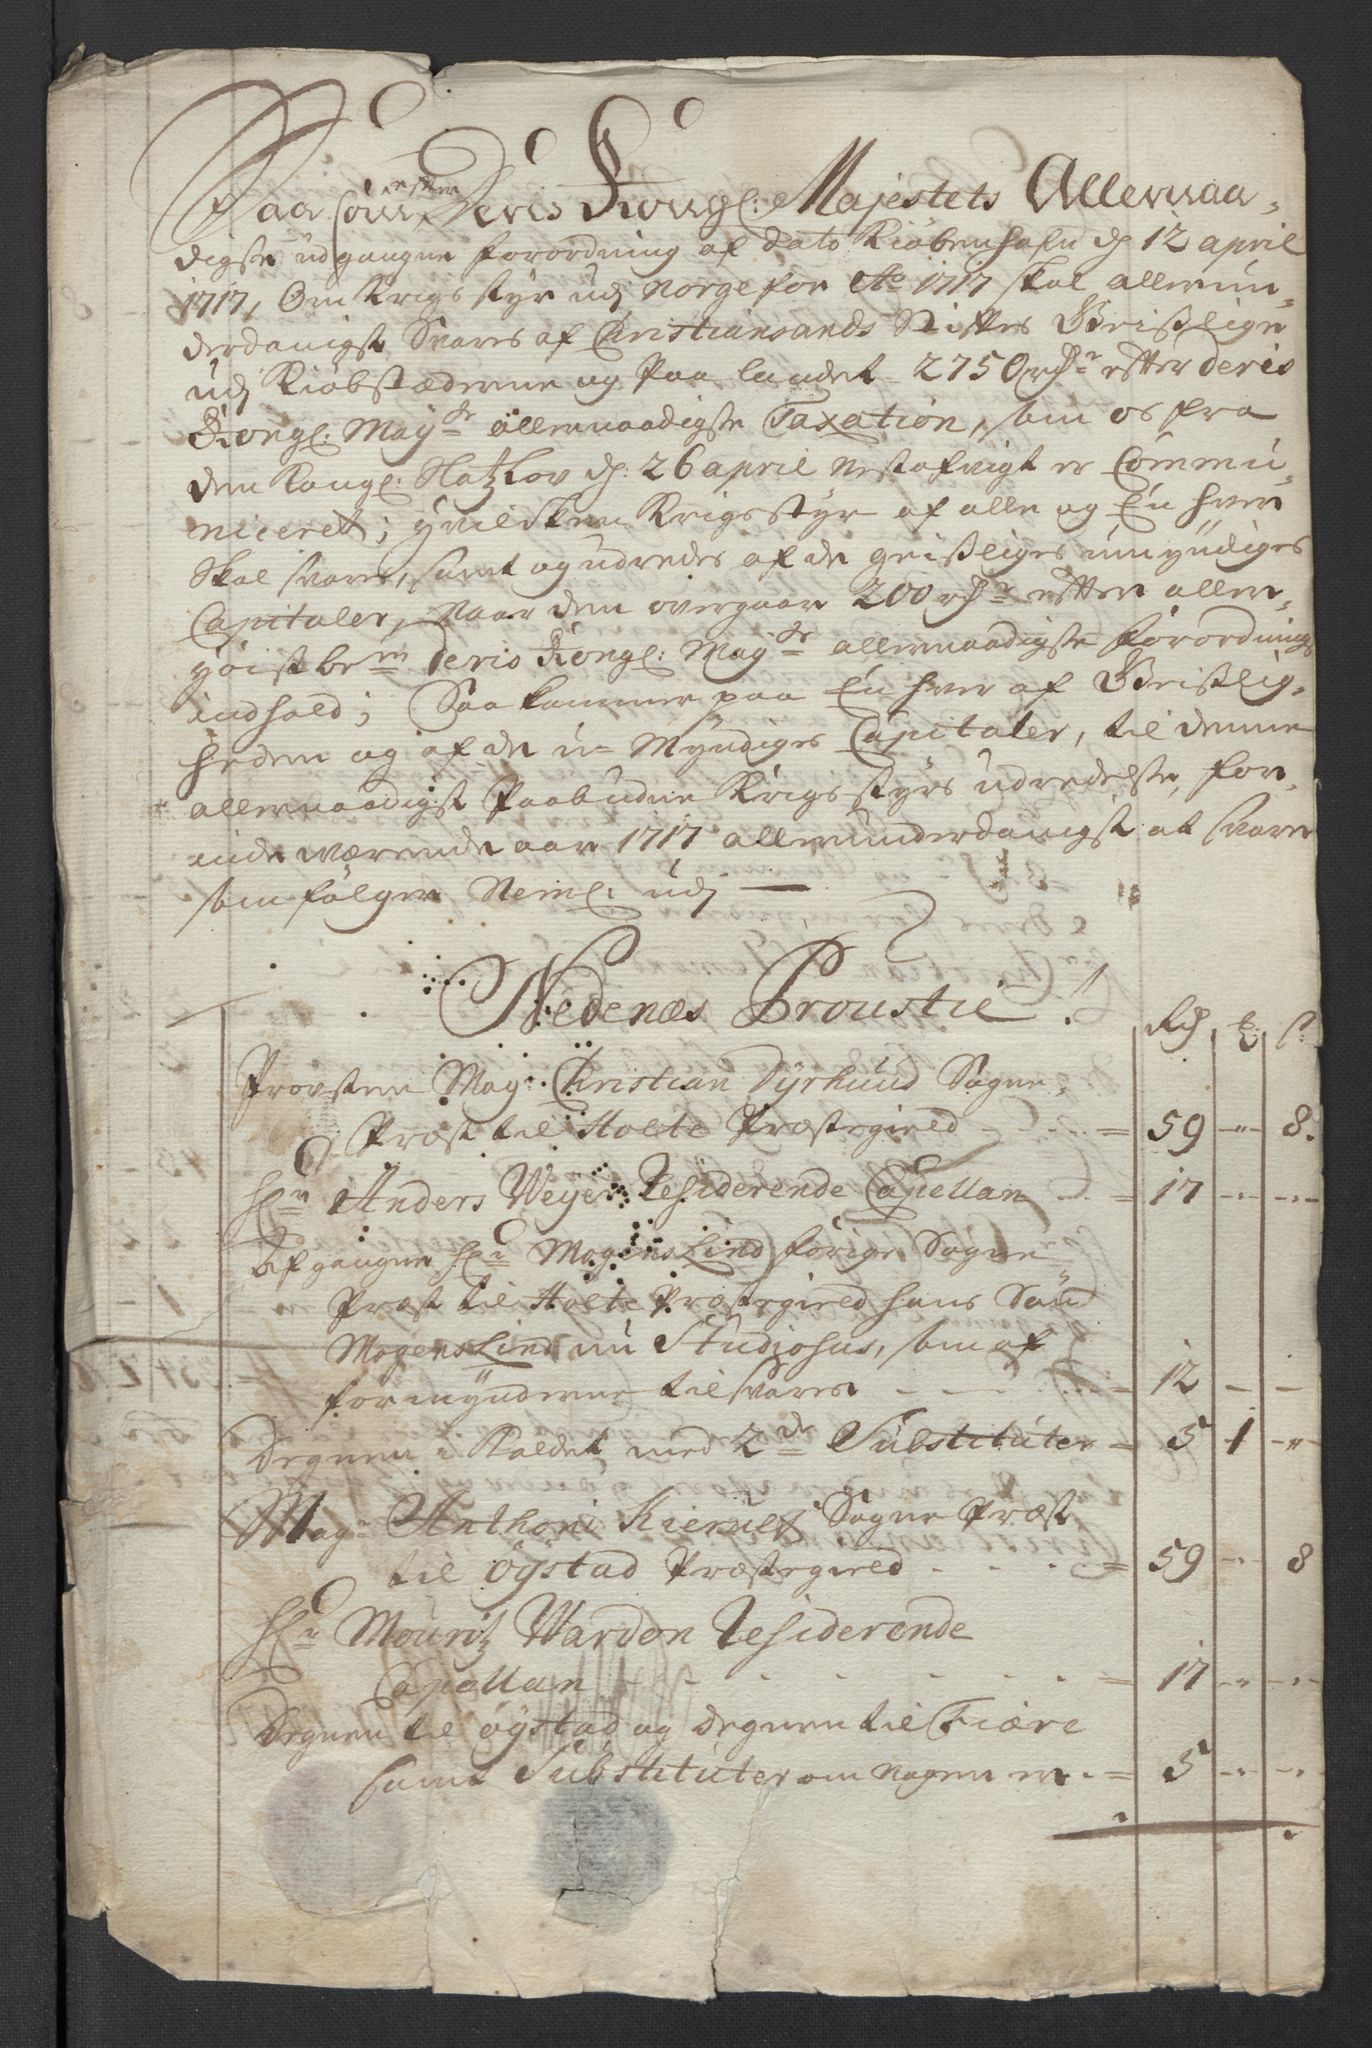 Saasom efter Deris Kongl: Majestets Allernaa-
digste udgangne forordning af dato Kiöbenhafn d: 12 april
1717, Om Krigs styr udj Norge for Ao 1717 skal allerun-
derdanigst Svares af Christiansands Stiftes Geistlige
udj Kiöbstæderne og Paa landet 2750 rdr efter deris
Kongl: Mayts allernaadigste Taxation, som os fra
den Kongl: Slotzlov d: 26 april nestafvigt er Commu-
niceret; hvilcken Krigsstyr af alle og En hver
Skal svares, samt og udredes af de geistliges umyndiges
Capitaler, naar dem overgaar 200 rdr efter aller-
höistbem: deris Kongl: Mayts allernaadigste forordnings
indhold; Saa kommer paa En hver af Geistlig-
heden og af de u-Myndiges Capitaler, til denne
allernaadigst Paabudne Krigs styrs udredelse, for
inderværende aar 1717 allerunderdanigst at svare
som fölger Neml: udj
Nedenæs Proustie
Rd | | s:
Provsten Mag: Christian Dyrhuud Sogne
Præst til Holte Præstegield = 59 - 8.
Hr Anders Weyer Residerende Capellan = 17 - -
Afgangne Hr Mogens Lind forige Sogne
Præst til Holte Præstegield hans Sön
Mogens Lind nu Studiosus, som af
formynderne tilsvares = 12 - -
Degnen i Kaldet med 2de Substituter = 5 1 -
Mag: Anthoni Kierulf Sogne Præst
til Öystad Præstegield = 59 - 8
Hr Mouritz Wardon Residerende
Capellan = 17 - -
Degnen til Öystad og degnen til Fiære
samt Substituter om nogen er = 5 - -